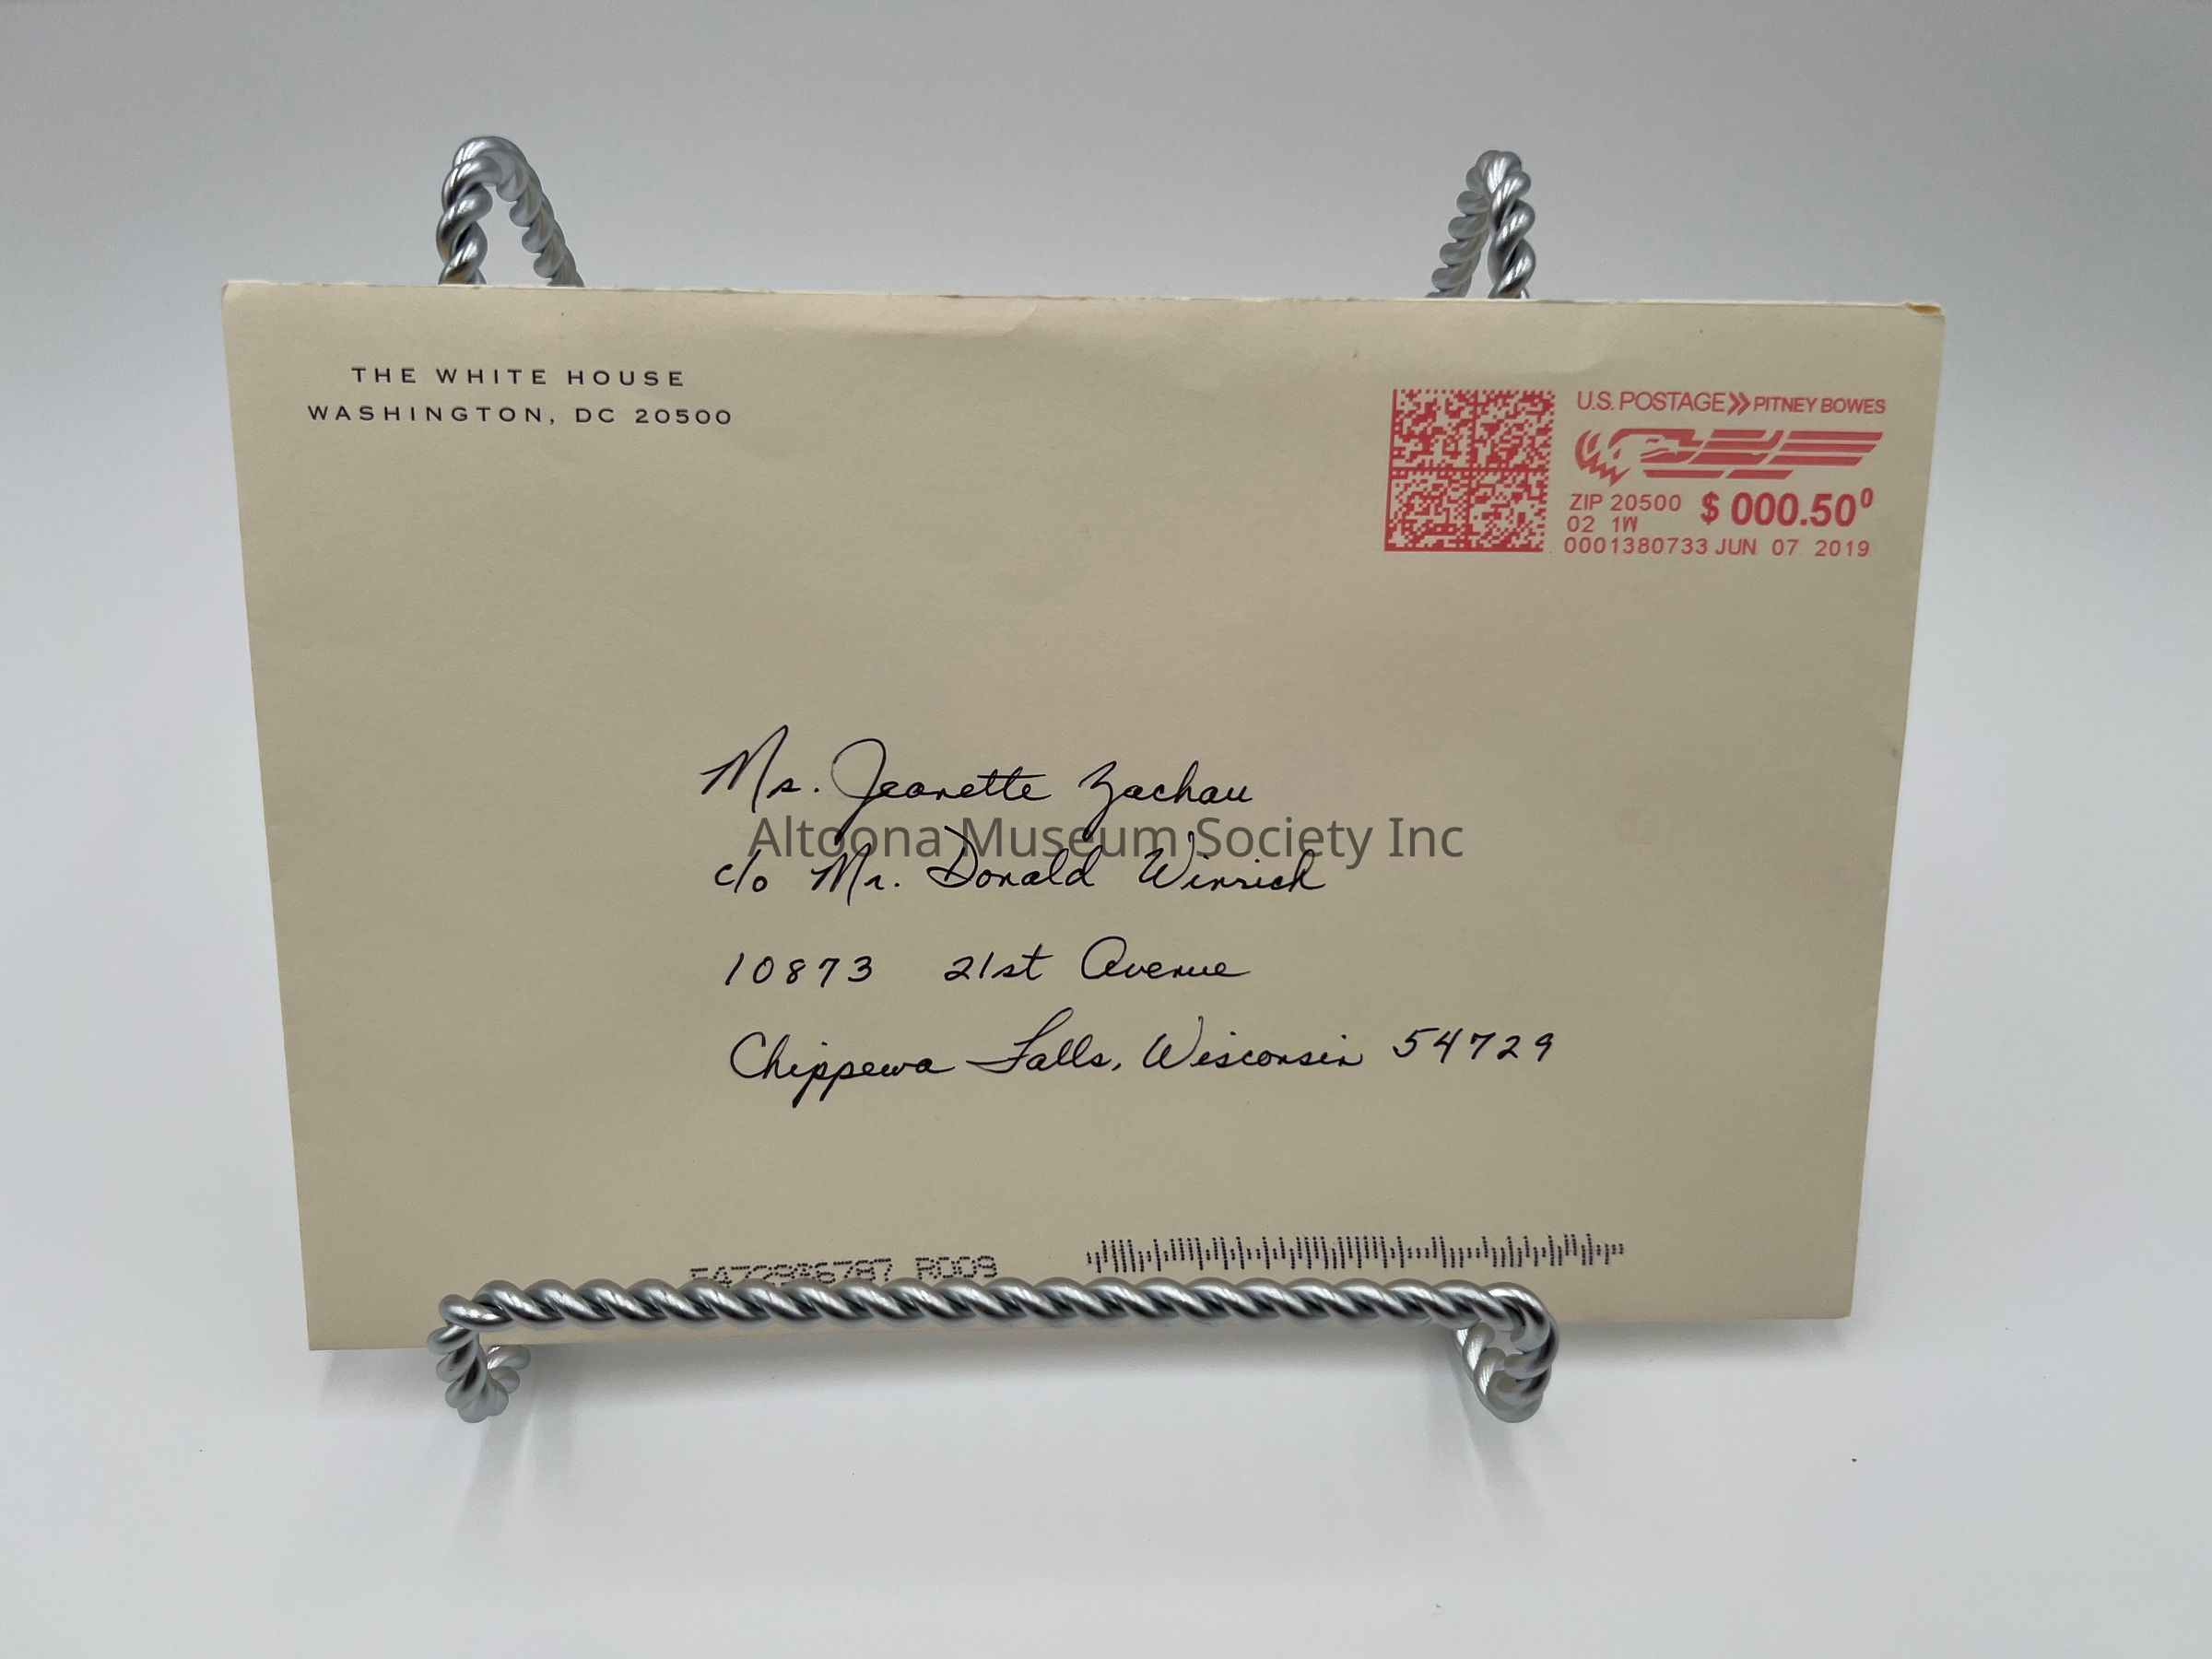 THE WHITE HOUSE
WASHINGTON, DC 20500
U.S. POSTAGE PITNEY BOWES
ZIP 20500 $ 000.50⁰
02 1W
0001380733 JUN 07 2019
Ms. Jeanette Zachau
Altoona Museum Society Inc
c/o Mr. Donald Winrich
10873 21st Avenue
Chippewa Falls, Wisconsin 54729
R009